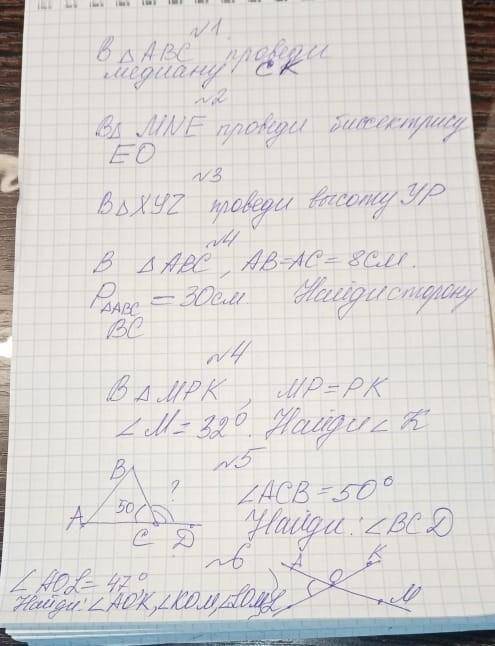 №1
В △ABC проведи
медиану CK
№2
В△ MNE проведи биссектрису
EO
№3
В△XYZ проведи высоту YP
№4
В △ABC, AB=AC=8см.
P△ABC = 30см Найди сторону
BC
№4
В △MPK, MP=PK
∠M=32°. Найди∠K
№5
B ?
∠ACB=50°
50
A C D
Найди: ∠BCD
№6
A K
∠AOL=47°
O
Найди: ∠AOK, ∠KOM, ∠LOM
L M